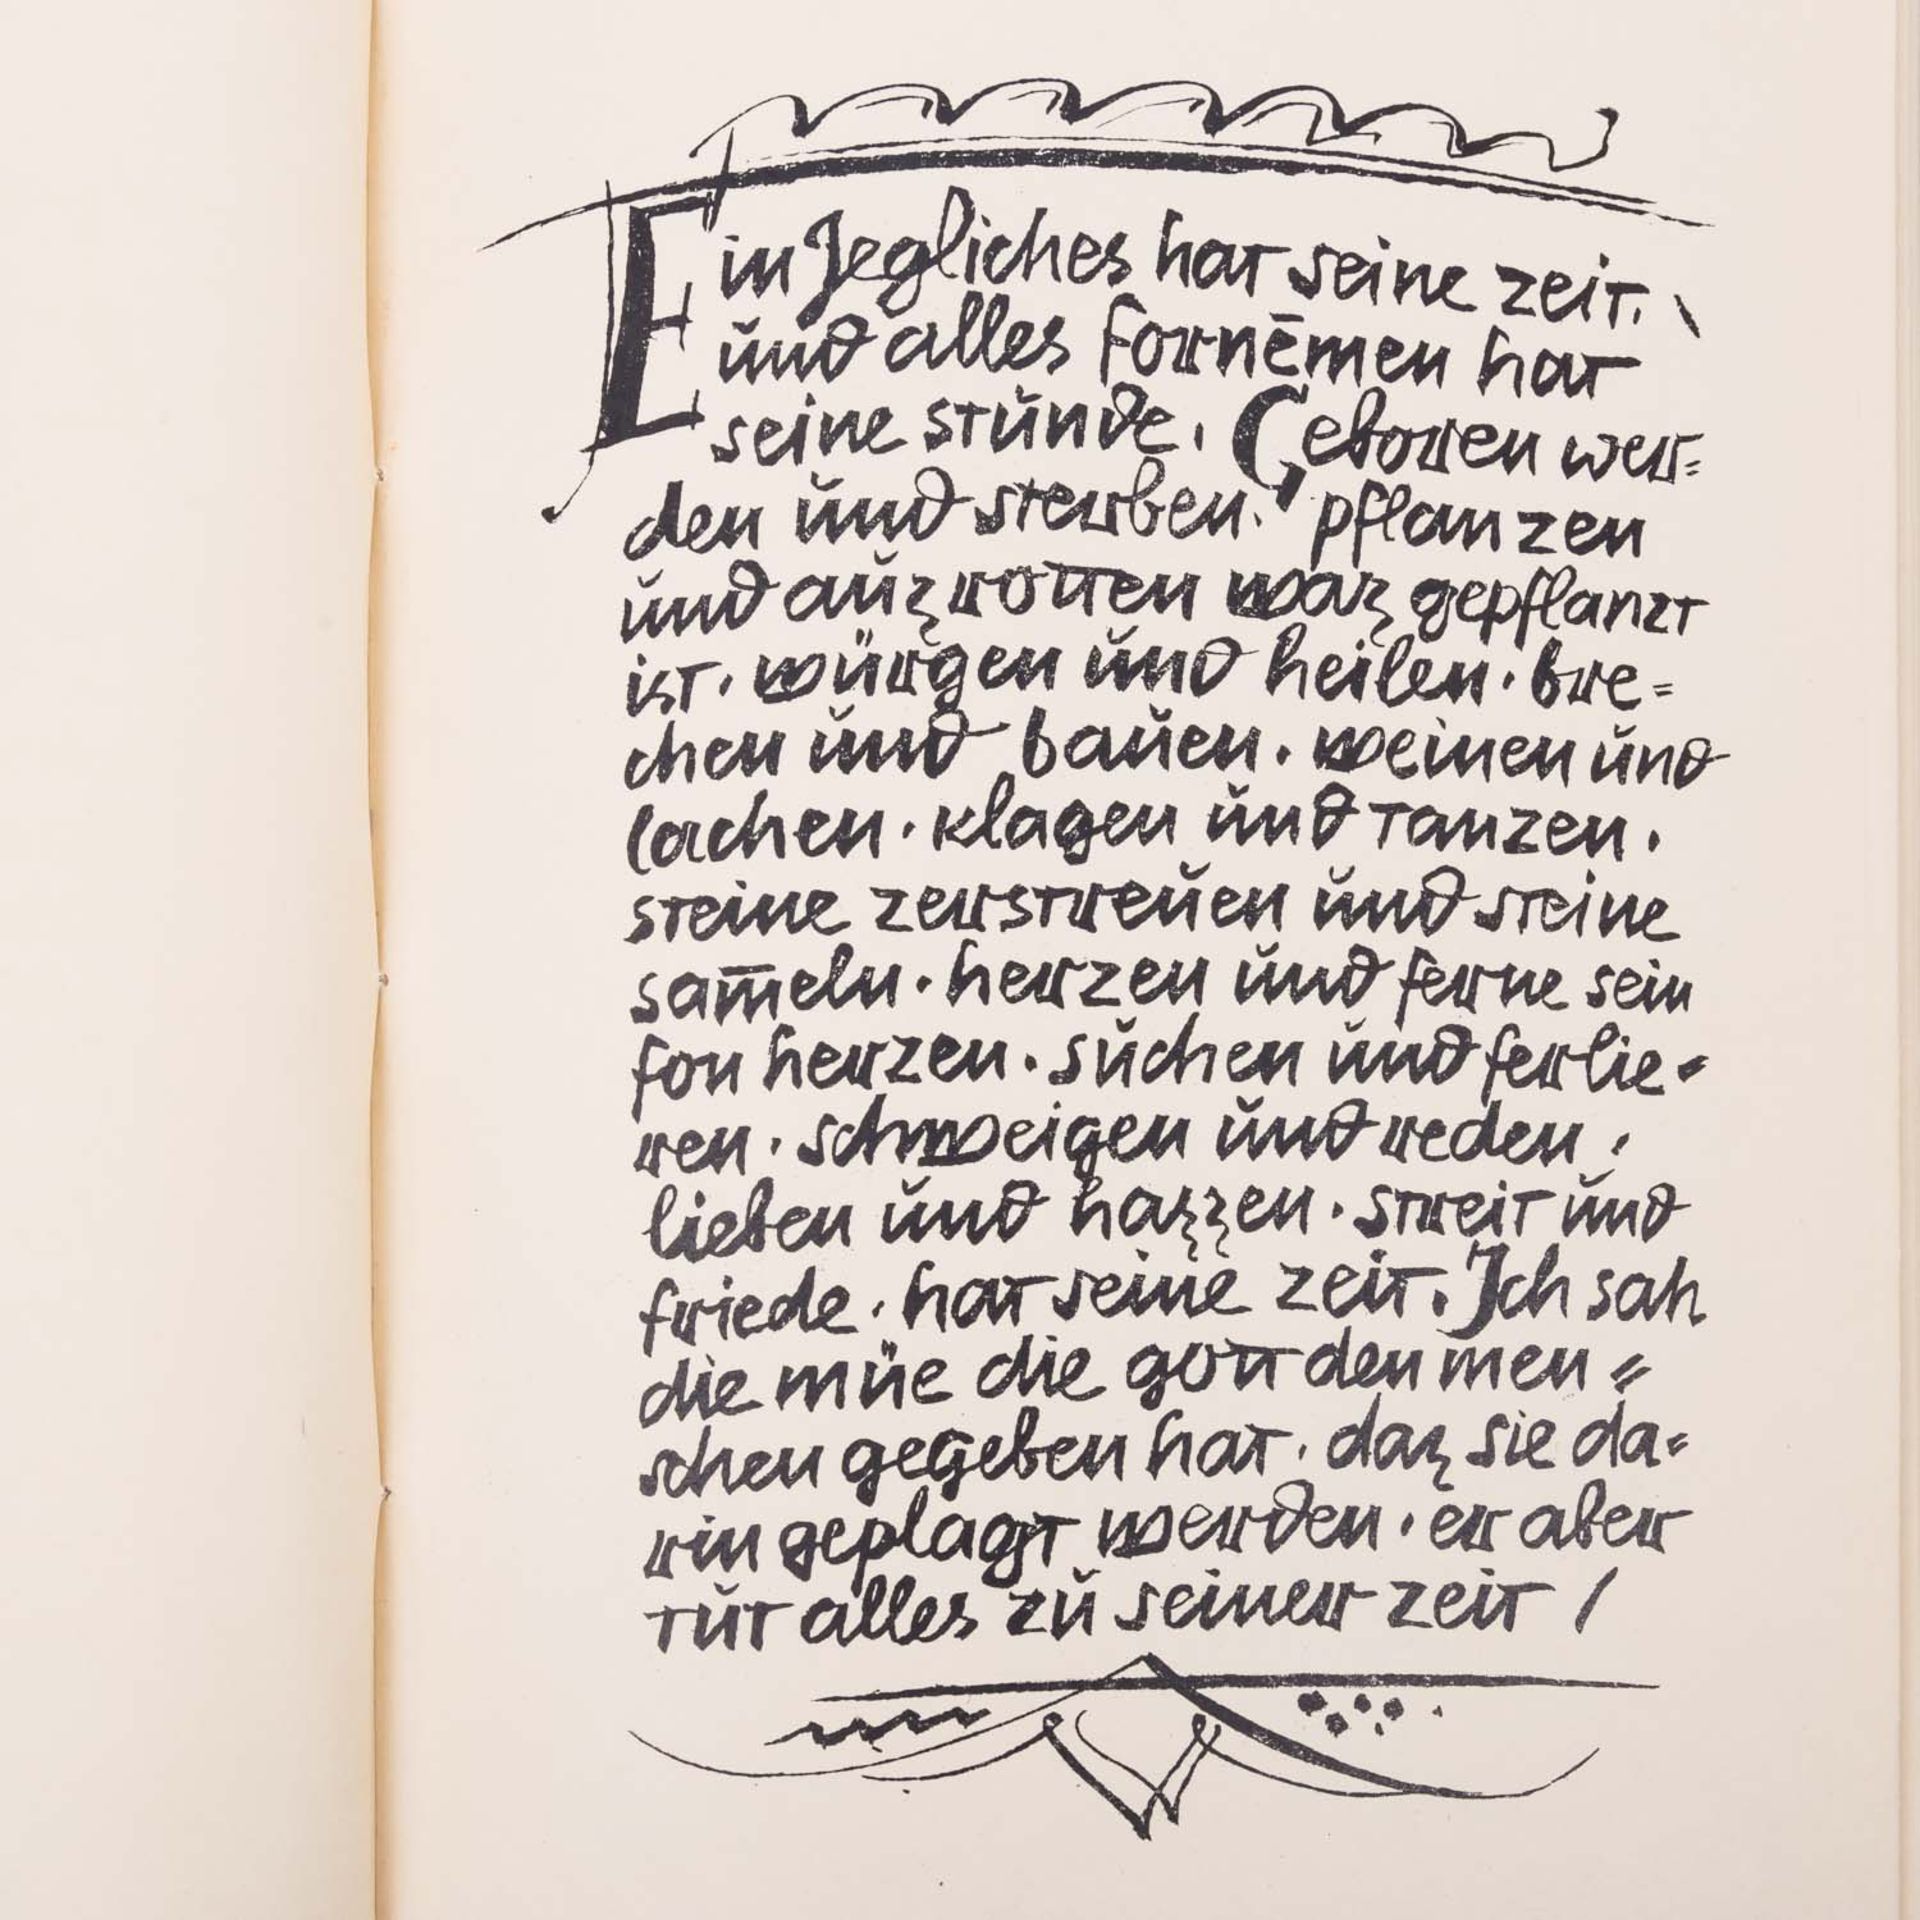 Ein Jegliches hat seine zeit.
ŭnd alles fornēmen hat
seine stŭnde. Geboren wer=
den ŭnd sterben. pflanzen
ŭnd aŭʒrotten waʒ gepflanzt
ist. würgen ŭnd heilen. bre=
chen ŭnd baŭen. weinen ŭnd
lachen. klagen ŭnd tanzen.
steine zerstreŭen ŭnd steine
sam̅eln. herzen ŭnd ferne sein
fon herzen. sŭchen ŭnd ferlie=
ren. schweigen ŭnd reden.
lieben ŭnd haʒʒen. streit ŭnd
friede. hat seine zeit. Ich sah
die müe die gott den men=
schen gegeben hat. daʒ sie da=
rin geplagt werden. er aber
tŭt alles zŭ seiner zeit /